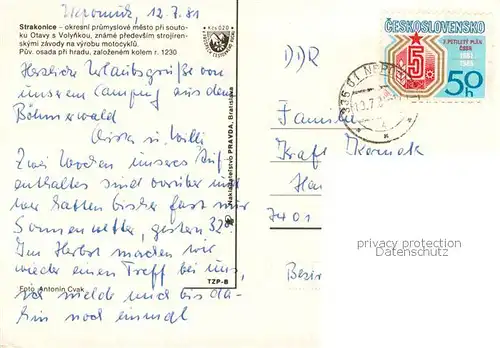 Nepomuk, 12.7.81
Strakonice – okresní průmyslové město při souto-
ku Otavy s Volyňkou, známé především strojíren-
skými závody na výrobu motocyklů.
Pův. osada při hradu, založeném kolem r. 1230
Herzliche Urlaubsgrüße von
unserem Camping aus dem
Böhmerwald
u. Willi
Zwei Wochen unseres Auf-
enthaltes sind vorüber und
wir hatten bisher fast nur
Sonnenwetter, gestern 32°.
Im Herbst machen wir
wieder einen Treff bei uns,
melde und bis da-
hin noch einmal
Foto Antonín Cvak
TZP-B
Nakladatelství PRAVDA, Bratislava
DDR
ČESKOSLOVENSKO
7. PĚTILETÝ PLÁN
ČSSR
1981
1985
5
50h
335 01 NEPOMUK
Familie
Kraft
7401
Bezir
privacy protection
Datenschutz